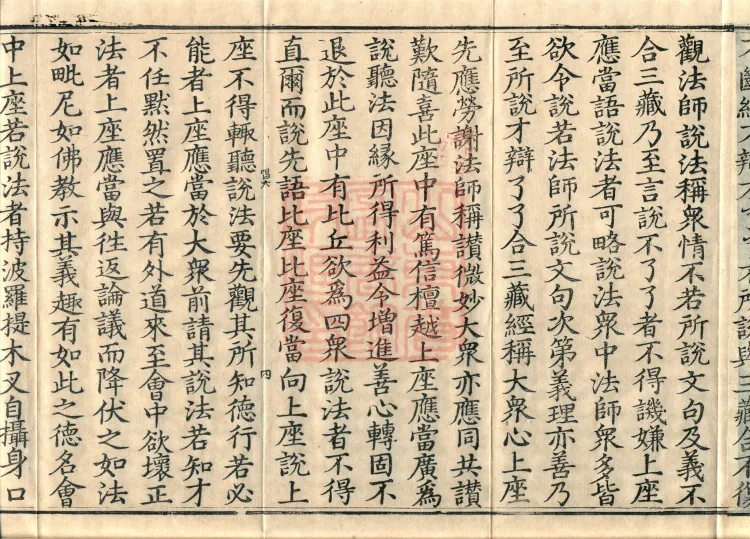 觀法師說法稱衆情不若所說文句及義不
合三藏乃至言說不了了者不得譏嫌上座
應當語說法者可略說法衆中法師衆多皆
欲令說若法師所說文句次第義理亦善乃
至所說才辯了了合三藏經稱大衆心上座
先應勞謝法師稱讃微妙大衆亦應同共讃
歎隨喜此座中有篤信檀越上座應當廣爲
說聽法因緣所得利益令增進善心轉固不
退於此座中有比丘欲爲四衆說法者不得
直爾而說先語比座比座復當向上座說上
座不得輙聽說法要先觀其所知德行若必
能者上座應當於大衆前請其說法若知才
不任默然置之若有外道來至會中欲壞正
法者上座應當與徃返論議而降伏之如法
如毗尼如佛教示其義趣有如此之德名會
中上座若說法者持波羅提木叉自攝身口
四